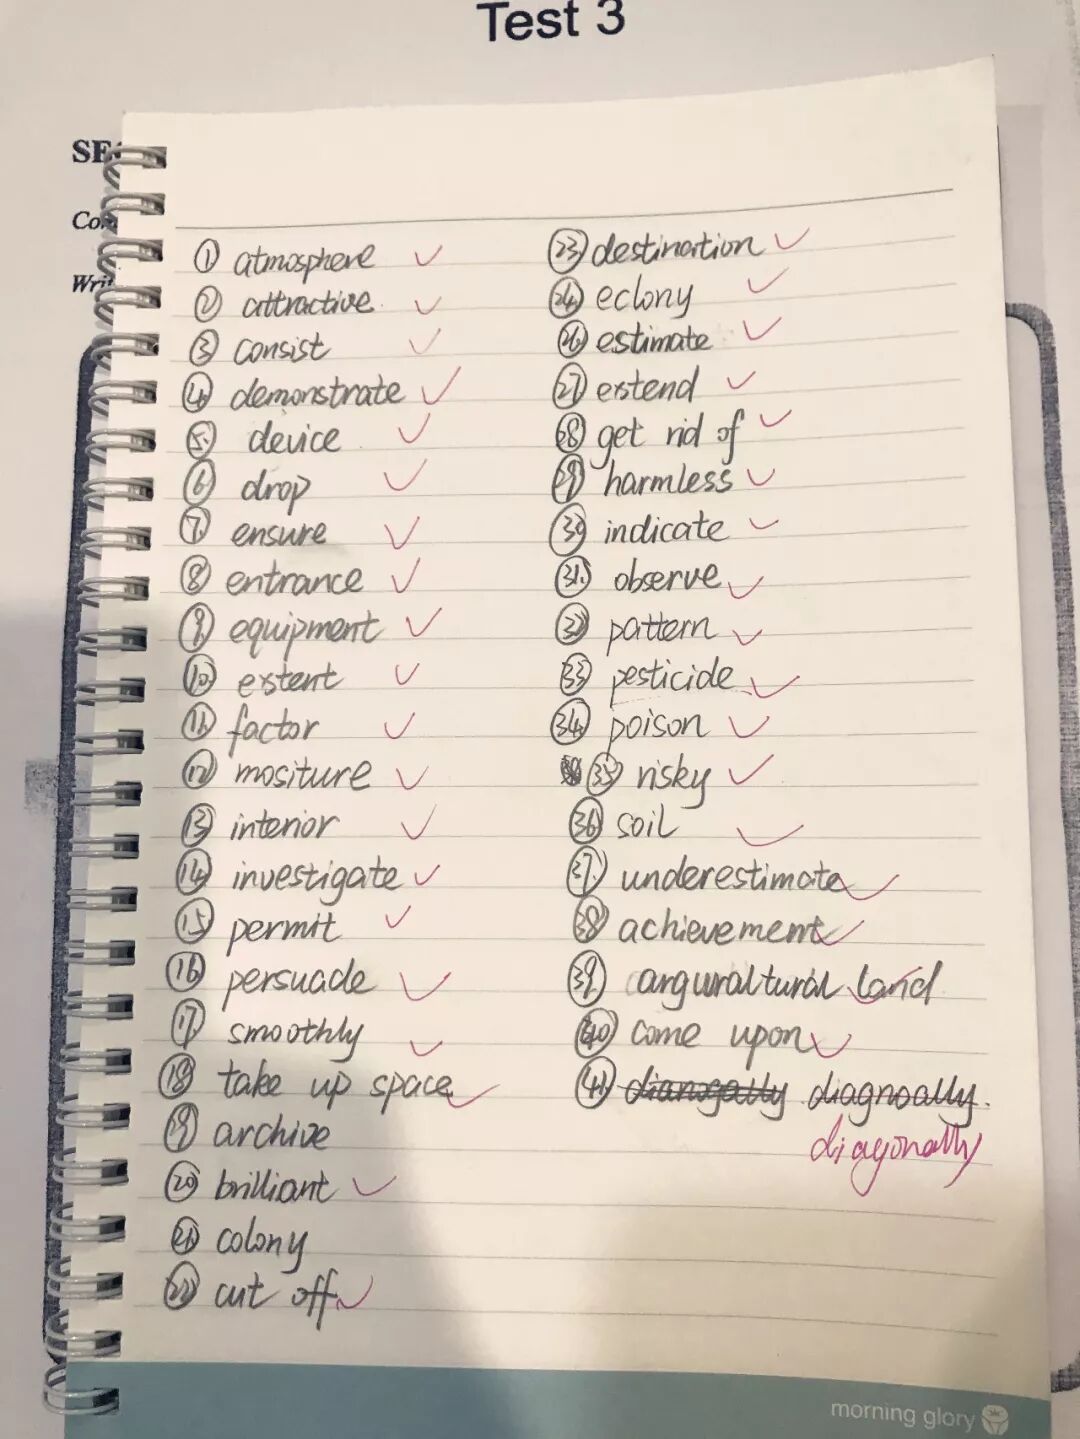 Test 3
SE
Com
Writ
① atmosphere
② attractive
③ consist
④ demonstrate
⑤ device
⑥ drop
⑦ ensure
⑧ entrance
⑨ equipment
⑩ extent
⑪ factor
⑫ mositure
⑬ interior
⑭ investigate
⑮ permit
⑯ persuade
⑰ smoothly
⑱ take up space
⑲ archive
⑳ brilliant
㉑ colony
㉒ cut off
㉓ destination
㉔ eclony
㉖ estimate
㉗ extend
㉘ get rid of
㉙ harmless
㉚ indicate
㉛ observe
㉜ pattern
㉝ pesticide
㉞ poison
㉟ risky
㊱ soil
㊲ underestimate
㊳ achievement
㊴ arguraltural land
㊵ come upon
㊶ dianogally diagnoally.
diagonally
morning glory